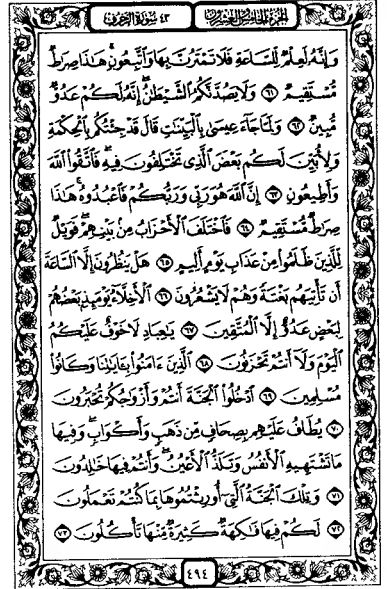 الجزء الخامس والعشرون ٤٣ سورة الزخرف
وَإِنَّهُۥ لَعِلْمٌ لِّلسَّاعَةِ فَلَا تَمْتَرُنَّ بِهَا وَٱتَّبِعُونِ ۚ هَـٰذَا صِرَٰطٌ
مُّسْتَقِيمٌ ٦١ وَلَا يَصُدَّنَّكُمُ ٱلشَّيْطَـٰنُ ۖ إِنَّهُۥ لَكُمْ عَدُوٌّ
مُّبِينٌ ٦٢ وَلَمَّا جَآءَ عِيسَىٰ بِٱلْبَيِّنَـٰتِ قَالَ قَدْ جِئْتُكُم بِٱلْحِكْمَةِ
وَلِأُبَيِّنَ لَكُم بَعْضَ ٱلَّذِى تَخْتَلِفُونَ فِيهِ ۖ فَٱتَّقُوا۟ ٱللَّهَ
وَأَطِيعُونِ ٦٣ إِنَّ ٱللَّهَ هُوَ رَبِّى وَرَبُّكُمْ فَٱعْبُدُوهُ ۚ هَـٰذَا
صِرَٰطٌ مُّسْتَقِيمٌ ٦٤ فَٱخْتَلَفَ ٱلْأَحْزَابُ مِنۢ بَيْنِهِمْ ۖ فَوَيْلٌ
لِّلَّذِينَ ظَلَمُوا۟ مِنْ عَذَابِ يَوْمٍ أَلِيمٍ ٦٥ هَلْ يَنظُرُونَ إِلَّا ٱلسَّاعَةَ
أَن تَأْتِيَهُم بَغْتَةً وَهُمْ لَا يَشْعُرُونَ ٦٦ ٱلْأَخِلَّآءُ يَوْمَئِذٍۭ بَعْضُهُمْ
لِبَعْضٍ عَدُوٌّ إِلَّا ٱلْمُتَّقِينَ ٦٧ يَـٰعِبَادِ لَا خَوْفٌ عَلَيْكُمُ
ٱلْيَوْمَ وَلَآ أَنتُمْ تَحْزَنُونَ ٦٨ ٱلَّذِينَ ءَامَنُوا۟ بِـَٔايَـٰتِنَا وَكَانُوا۟
مُسْلِمِينَ ٦٩ ٱدْخُلُوا۟ ٱلْجَنَّةَ أَنتُمْ وَأَزْوَٰجُكُمْ تُحْبَرُونَ
٧٠ يُطَافُ عَلَيْهِم بِصِحَافٍ مِّن ذَهَبٍ وَأَكْوَابٍ ۖ وَفِيهَا
مَا تَشْتَهِيهِ ٱلْأَنفُسُ وَتَلَذُّ ٱلْأَعْيُنُ ۖ وَأَنتُمْ فِيهَا خَـٰلِدُونَ
٧١ وَتِلْكَ ٱلْجَنَّةُ ٱلَّتِىٓ أُورِثْتُمُوهَا بِمَا كُنتُمْ تَعْمَلُونَ
٧٢ لَكُمْ فِيهَا فَـٰكِهَةٌ كَثِيرَةٌ مِّنْهَا تَأْكُلُونَ ٧٣
٤٩٤